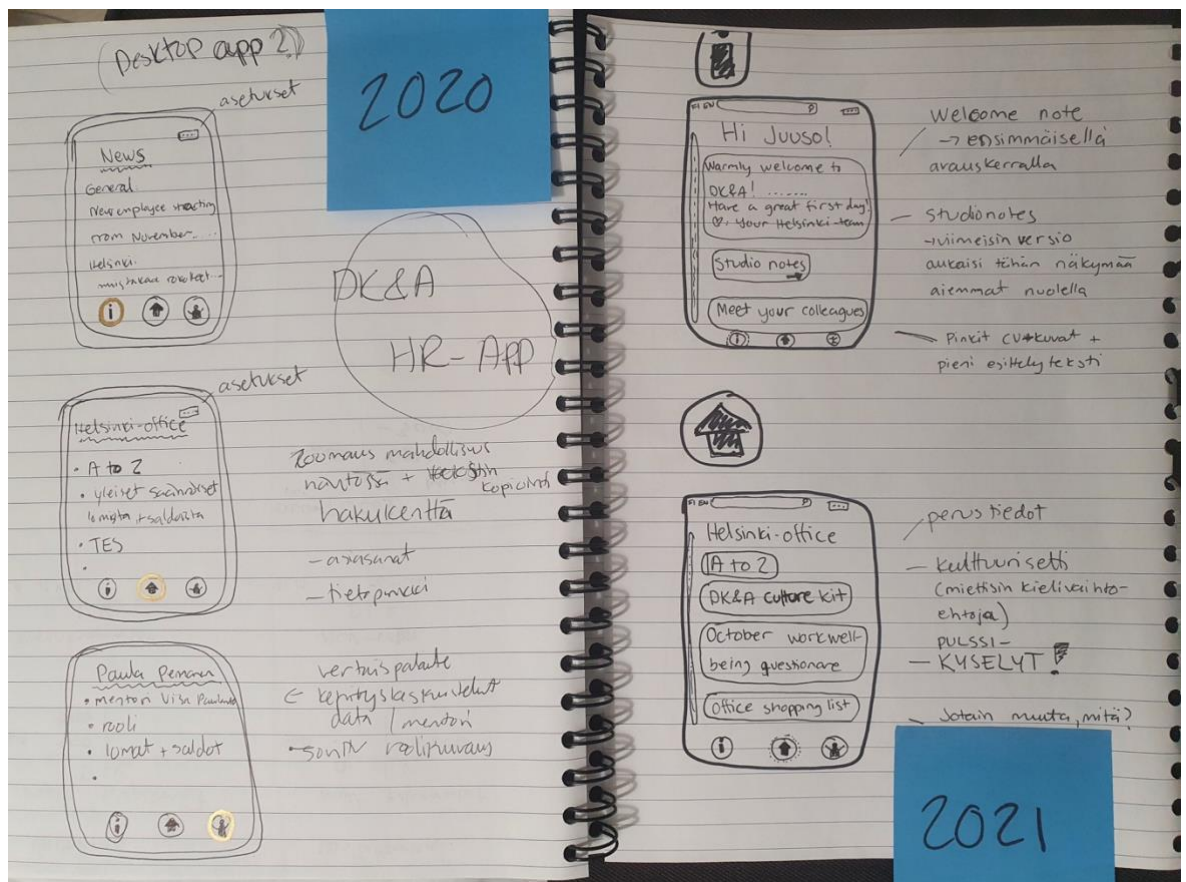 (Desktop app?)
2020
asetukset
News
General
New employee starting
from November....
Helsinki
i
DK&A
HR-App
asetukset
Helsinki-office
• A to Z
• yleiset säännökset
lomista + saldoista
• TES
•
i
Zoomaus mahdollisuus
näytössä + tekstin
kopiointi
hakukenttä
- avasanat
- tietopankki
Paula
• mentori Visa
• rooli
• lomat + saldot
•
i
vertaispalaute
← kehityskeskustelut
data / mentori
roolikuvaus
FI EN
Hi Juuso!
Warmly welcome to
DK&A! .......
Have a great first day!
♡: your Helsinki-team
Studio notes
Meet your colleagues
i
welcome note
→ ensimmäisellä
avauskerralla
- studionotes
→ viimeisin versio
aukaisi tähän näkymään
aiemmat nuolella
Pinkit CV-kuvat +
pieni esittelyteksti
FI EN
Helsinki-office
A to Z
DK&A Culture kit
October workwell-
being questionare
Office shopping list
i
perustiedot
- kulttuurisetti
(miettisin kielivaihto-
ehtoja)
PULSSI-
- KYSELYT!
- Jotain muuta, mitä?
2021